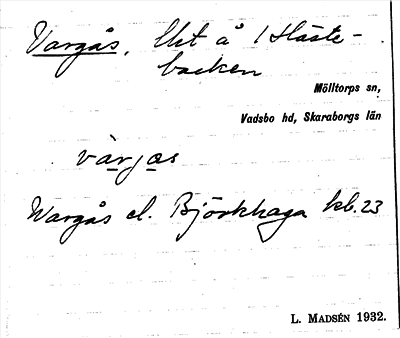 Vargås, lht å 1 Häste-
backen
Mölltorps sn,
Vadsbo hd, Skaraborgs län
värjas
Wargås el. Björkhaga kb. 23
L. MADSÉN 1932.